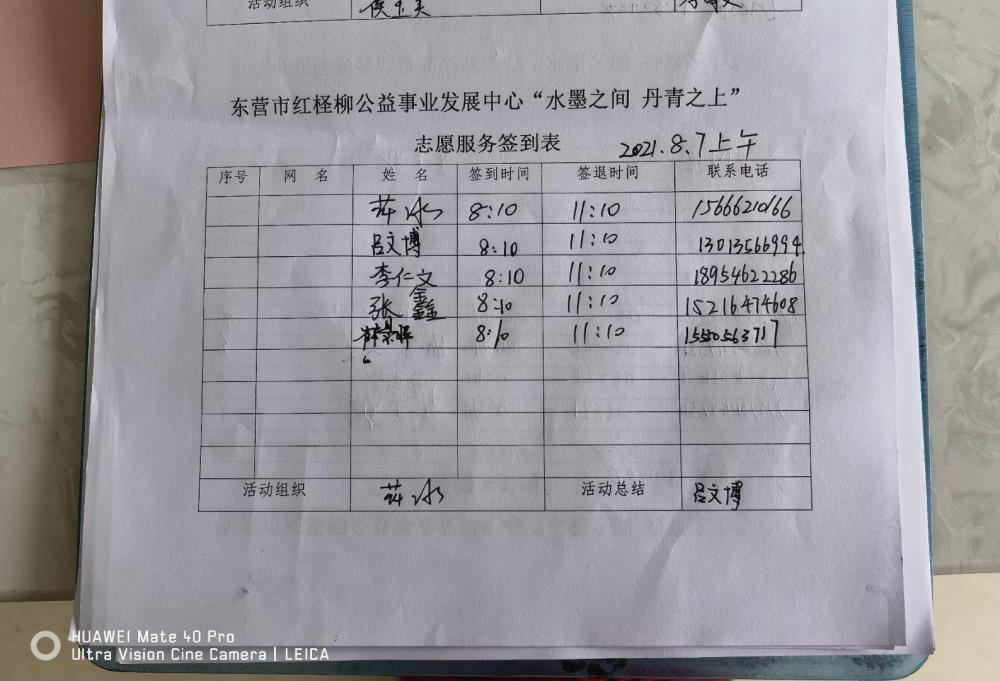 活动组织
东营市红柽柳公益事业发展中心“水墨之间 丹青之上”
志愿服务签到表 2021.8.7上午
序号 网 名 姓 名 签到时间 签退时间 联系电话
冰 8:10 11:10 15666210166
吕文博 8:10 11:10 13013566994
李仁文 8:10 11:10 18954622286
张鑫 8:10 11:10 15216474608
8:10 11:10 1550563717
活动组织 冰 活动总结 吕文博
HUAWEI Mate 40 Pro
Ultra Vision Cine Camera | LEICA